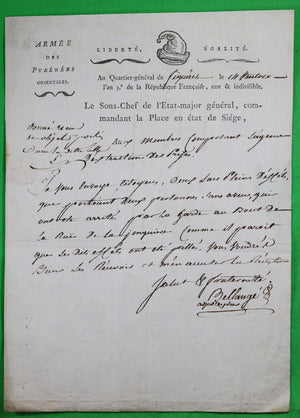 ARMÉE
DES
PYRÉNÉES
ORIENTALES.
LIBERTÉ, ÉGALITÉ.
Au Quartier-général de figuieres le 14 Pluviose
l'an 3.e de la République Française, une & indivisible.
Le Sous-Chef de l'Etat-major général, commandant la Place en état de Siége,
donné reçu
des objets portés
dans cette lettre
Aux Membres Composant l'agence
D'extraction des Prises
Je vous envoye Citoyens, Deux Sacs Pleins D'effets,
que portaient Deux personnes, sans aveu, qui
ont été arrêté par la Garde au Bout de
la Rue de la Jonquiere Comme il parait
que ces Dits effets ont été pillé, vous voudrez
Bien les Recevoir et m'en accuser la Réception
Salut & fraternité
Bellangé